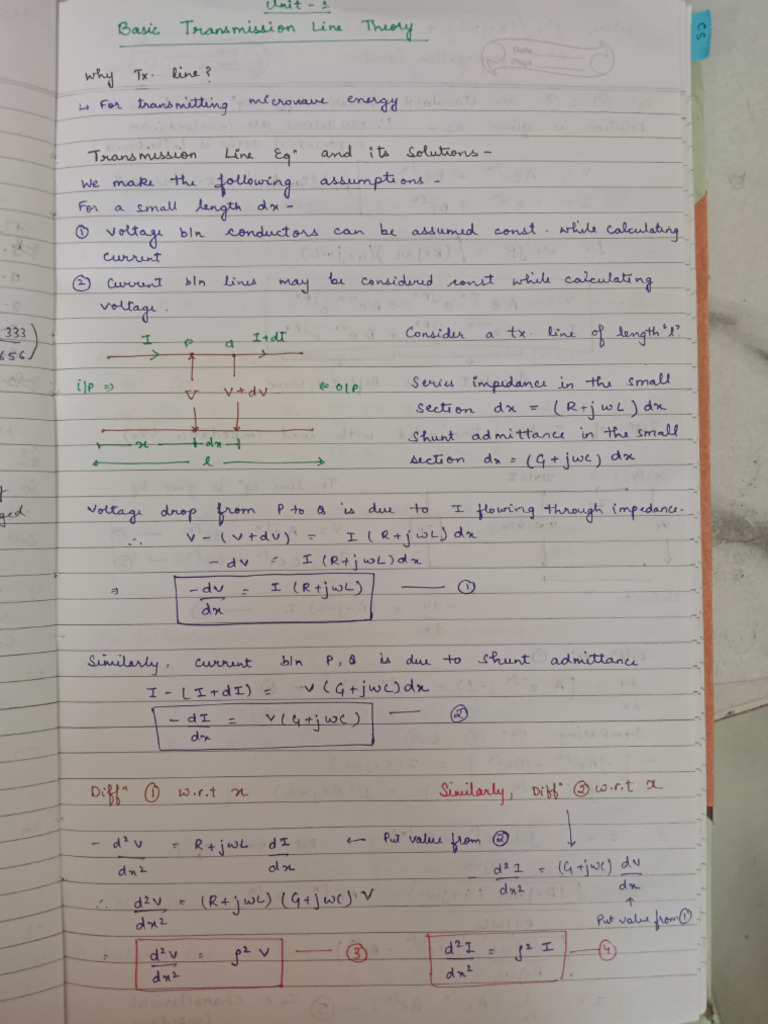 Unit - 1
Basic Transmission Line Theory
Date
Page
CS
Why Tx. line?
↳ For transmitting microwave energy
Transmission Line Eqⁿ and its Solutions -
We make the following assumptions -
For a small length dx -
① Voltage b/n conductors can be assumed const. while calculating
current
② Current b/n lines may be considered const while calculating
voltage.
333
656
I P Q I+dI
i/P ⇒ V V+dV ← O/P
x dx
l
Consider a tx. line of length 'l'.
Series impedance in the small
section dx = (R+jωL) dx
Shunt admittance in the small
section dx = (G+jωC) dx
ged
Voltage drop from P to Q is due to I flowing through impedance.
∴ V - (V+dV) = I (R+jωL) dx
- dV = I (R+jωL) dx
⇒ -dV/dx = I (R+jωL) — ①
Similarly, current b/n P, Q is due to shunt admittance
I - (I+dI) = V(G+jωC)dx
- dI/dx = V(G+jωC) — ②
Diffⁿ ① w.r.t x
- d²V/dx² = R+jωL dI/dx ← Put value from ②
∴ d²V/dx² = (R+jωL) (G+jωC) V
= d²V/dx² = ρ² V — ③
Similarly, Diffⁿ ② w.r.t x
- d²I/dx² = (G+jωC) dv/dx
↑
Put value from ①
d²I/dx² = ρ² I — ④